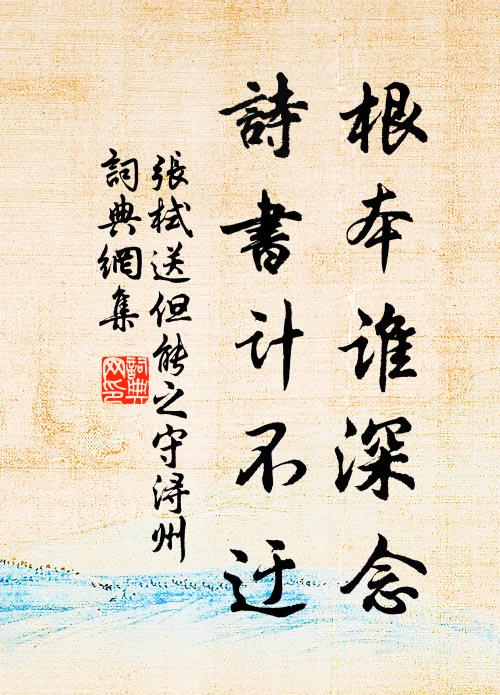 根本谁深念
詩書计不迂
張栻送但能之守浔州
詞典網集
詞典网印